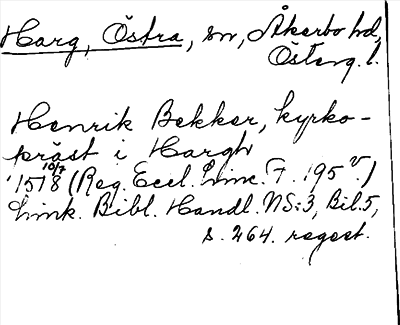 Harg, Östra, sn, Åkerbo hd,
Österg. l.
Henrik Bekker, kyrko-
präst i Hargh
10/7
1518 (Reg. Eccl. Linc. F. 195 v.)
Link. Bibl. Handl. NS:3, Bil. 5,
s. 264. regest.